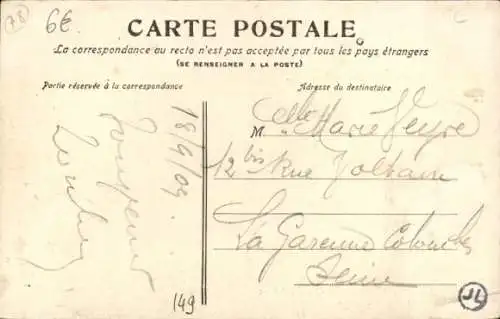 78
6€
CARTE POSTALE
La correspondance au recto n'est pas acceptée par tous les pays étrangers
(SE RENSEIGNER A LA POSTE)
Partie réservée à la correspondance
Adresse du destinataire
18/9/09
M. elle Marie Veyre
12 bis Rue Voltaire
La Garenne Colombes
Seine
149
JL